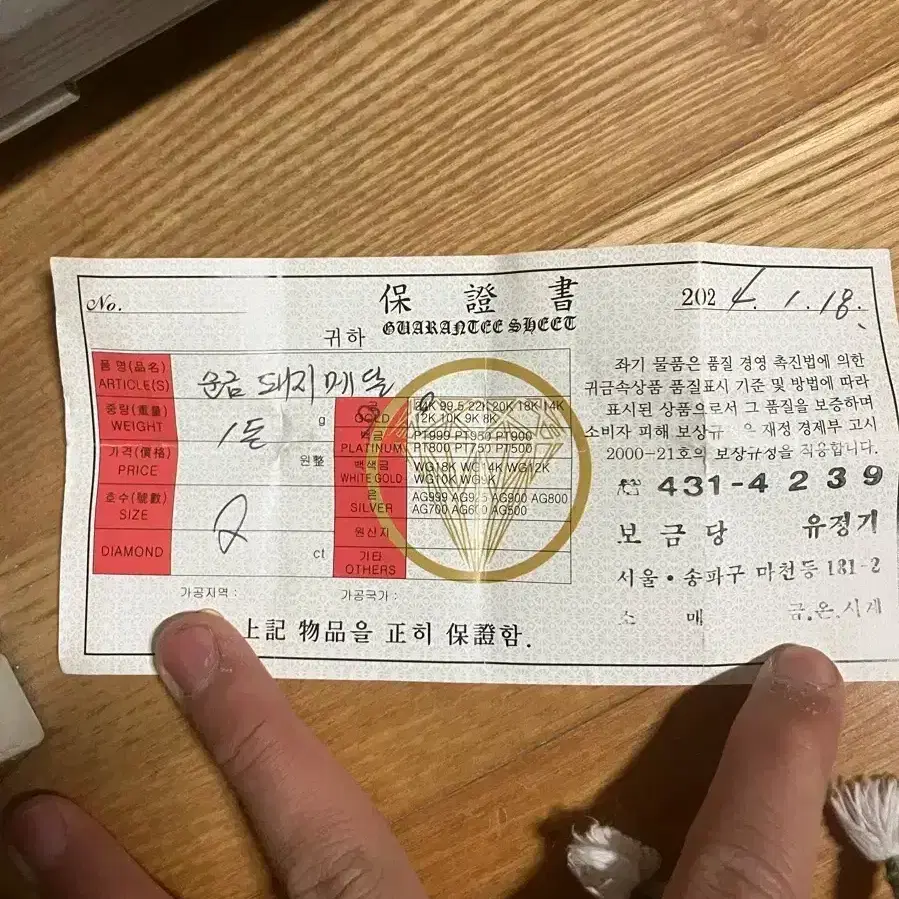 No.
保 證 書
GUARANTEE SHEET
귀하
2024. 1. 18.
품 명(品名)
ARTICLE(S)
순금 돼지메달
중량(重量)
WEIGHT
1돈 g
가격(價格)
PRICE
원整
호수(號數)
SIZE
2
DIAMOND
ct
금
GOLD
24K 99.5 22K 20K 18K 14K
12K 10K 9K 8K
백금
PLATINUM
PT999 PT950 PT900
PT800 PT750 PT500
백색금
WHITE GOLD
WG18K WG14K WG12K
WG10K WG9K
은
SILVER
AG999 AG925 AG900 AG800
AG700 AG600 AG500
원산지
기타
OTHERS
가공지역 :
가공국가 :
上記 物品을 正히 保證함.
좌기 물품은 품질 경영 촉진법에 의한
귀금속상품 품질표시 기준 및 방법에 따라
표시된 상품으로서 그 품질을 보증하며
소비자 피해 보상규 은 재정 경제부 고시
2000-21호의 보상규정을 적용합니다.
☎ 431-4239
보금당 유정기
서울・송파구 마천동 181-2
소 매 금.은.시계